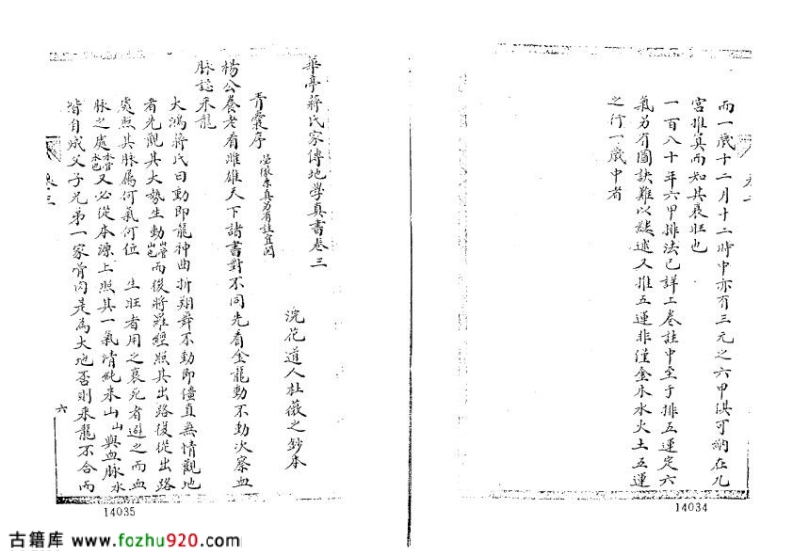 而一歲十二月十二時中亦有三元之六甲俱可納在九
宮推算而知其衰旺也
一百八十年六甲排法已詳二卷註中至于排五運定六
氣另有圖訣難以疑述又推五運非僅金木水火土五運
之行一歲中者
14034
華亭蔣氏家傳地學真書卷三
浣花道人杜薇之鈔本
青囊序
楊公養老看雌雄天下諸書對不同先看金龍動不動次察血
脉認來龍
大鴻蔣氏曰動即龍神曲折翔舞不動即僵直無情觀地
者先觀其大勢生動而後將羅經照其出路復從出路
處照其脉屬何氣何位 生旺者用之衰死者避之而血
脉之處又必從本源上照其一氣清純來山山與血脉水
皆自成父子兄弟一家骨肉是為大地否則來龍不合而
卷三
六
14035
古籍库 www.fozhu920.com